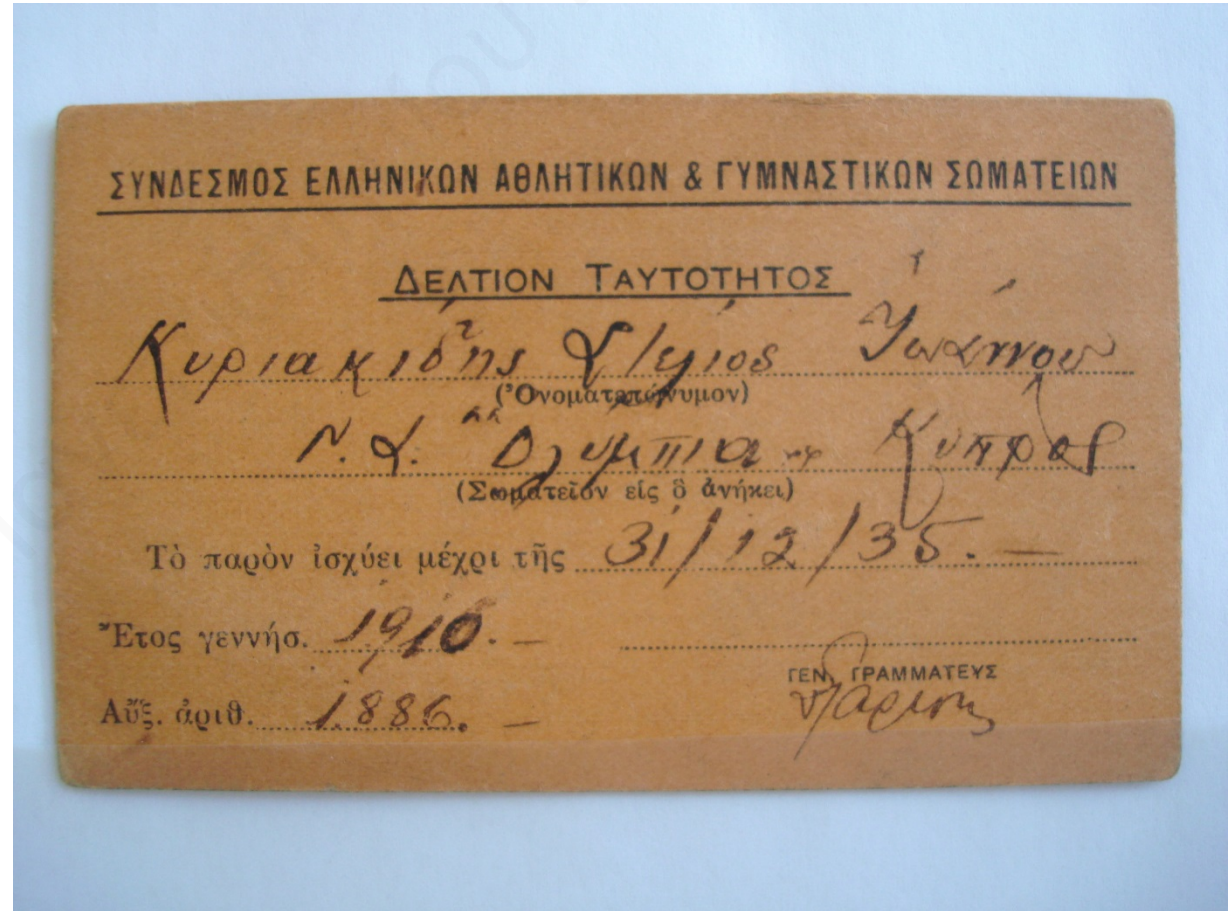 ΣΥΝΔΕΣΜΟΣ ΕΛΛΗΝΙΚΩΝ ΑΘΛΗΤΙΚΩΝ & ΓΥΜΝΑΣΤΙΚΩΝ ΣΩΜΑΤΕΙΩΝ
ΔΕΛΤΙΟΝ ΤΑΥΤΟΤΗΤΟΣ
Κυριακίδης Στέλιος Ἰωάννου
(Ὀνοματεπώνυμον)
Γ.Σ. "Ολύμπια" Κύπρος
(Σωματεῖον εἰς ὃ ἀνήκει)
Τὸ παρὸν ἰσχύει μέχρι τῆς 31/12/35. —
Ἔτος γεννήσ. 1910. —
ΓΕΝ. ΓΡΑΜΜΑΤΕΥΣ
Αὔξ. ἀριθ. 1886. —